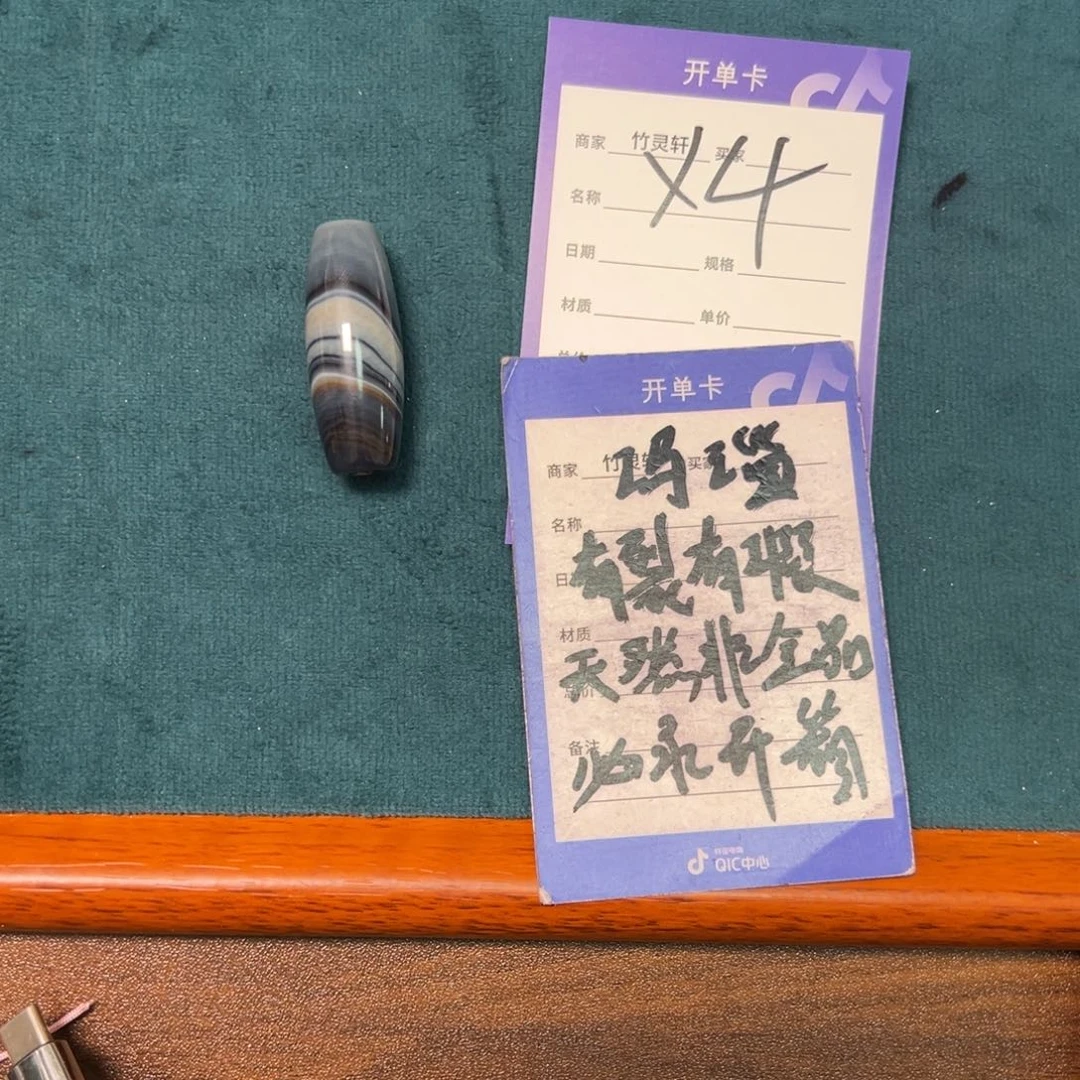 开单卡
商家 竹灵轩 买家
X4
名称
日期 规格
材质 单价
开单卡
商家 竹灵轩 买家
玛瑙
名称
有裂有瑕
材质
天然非全品
备注
QIC中心